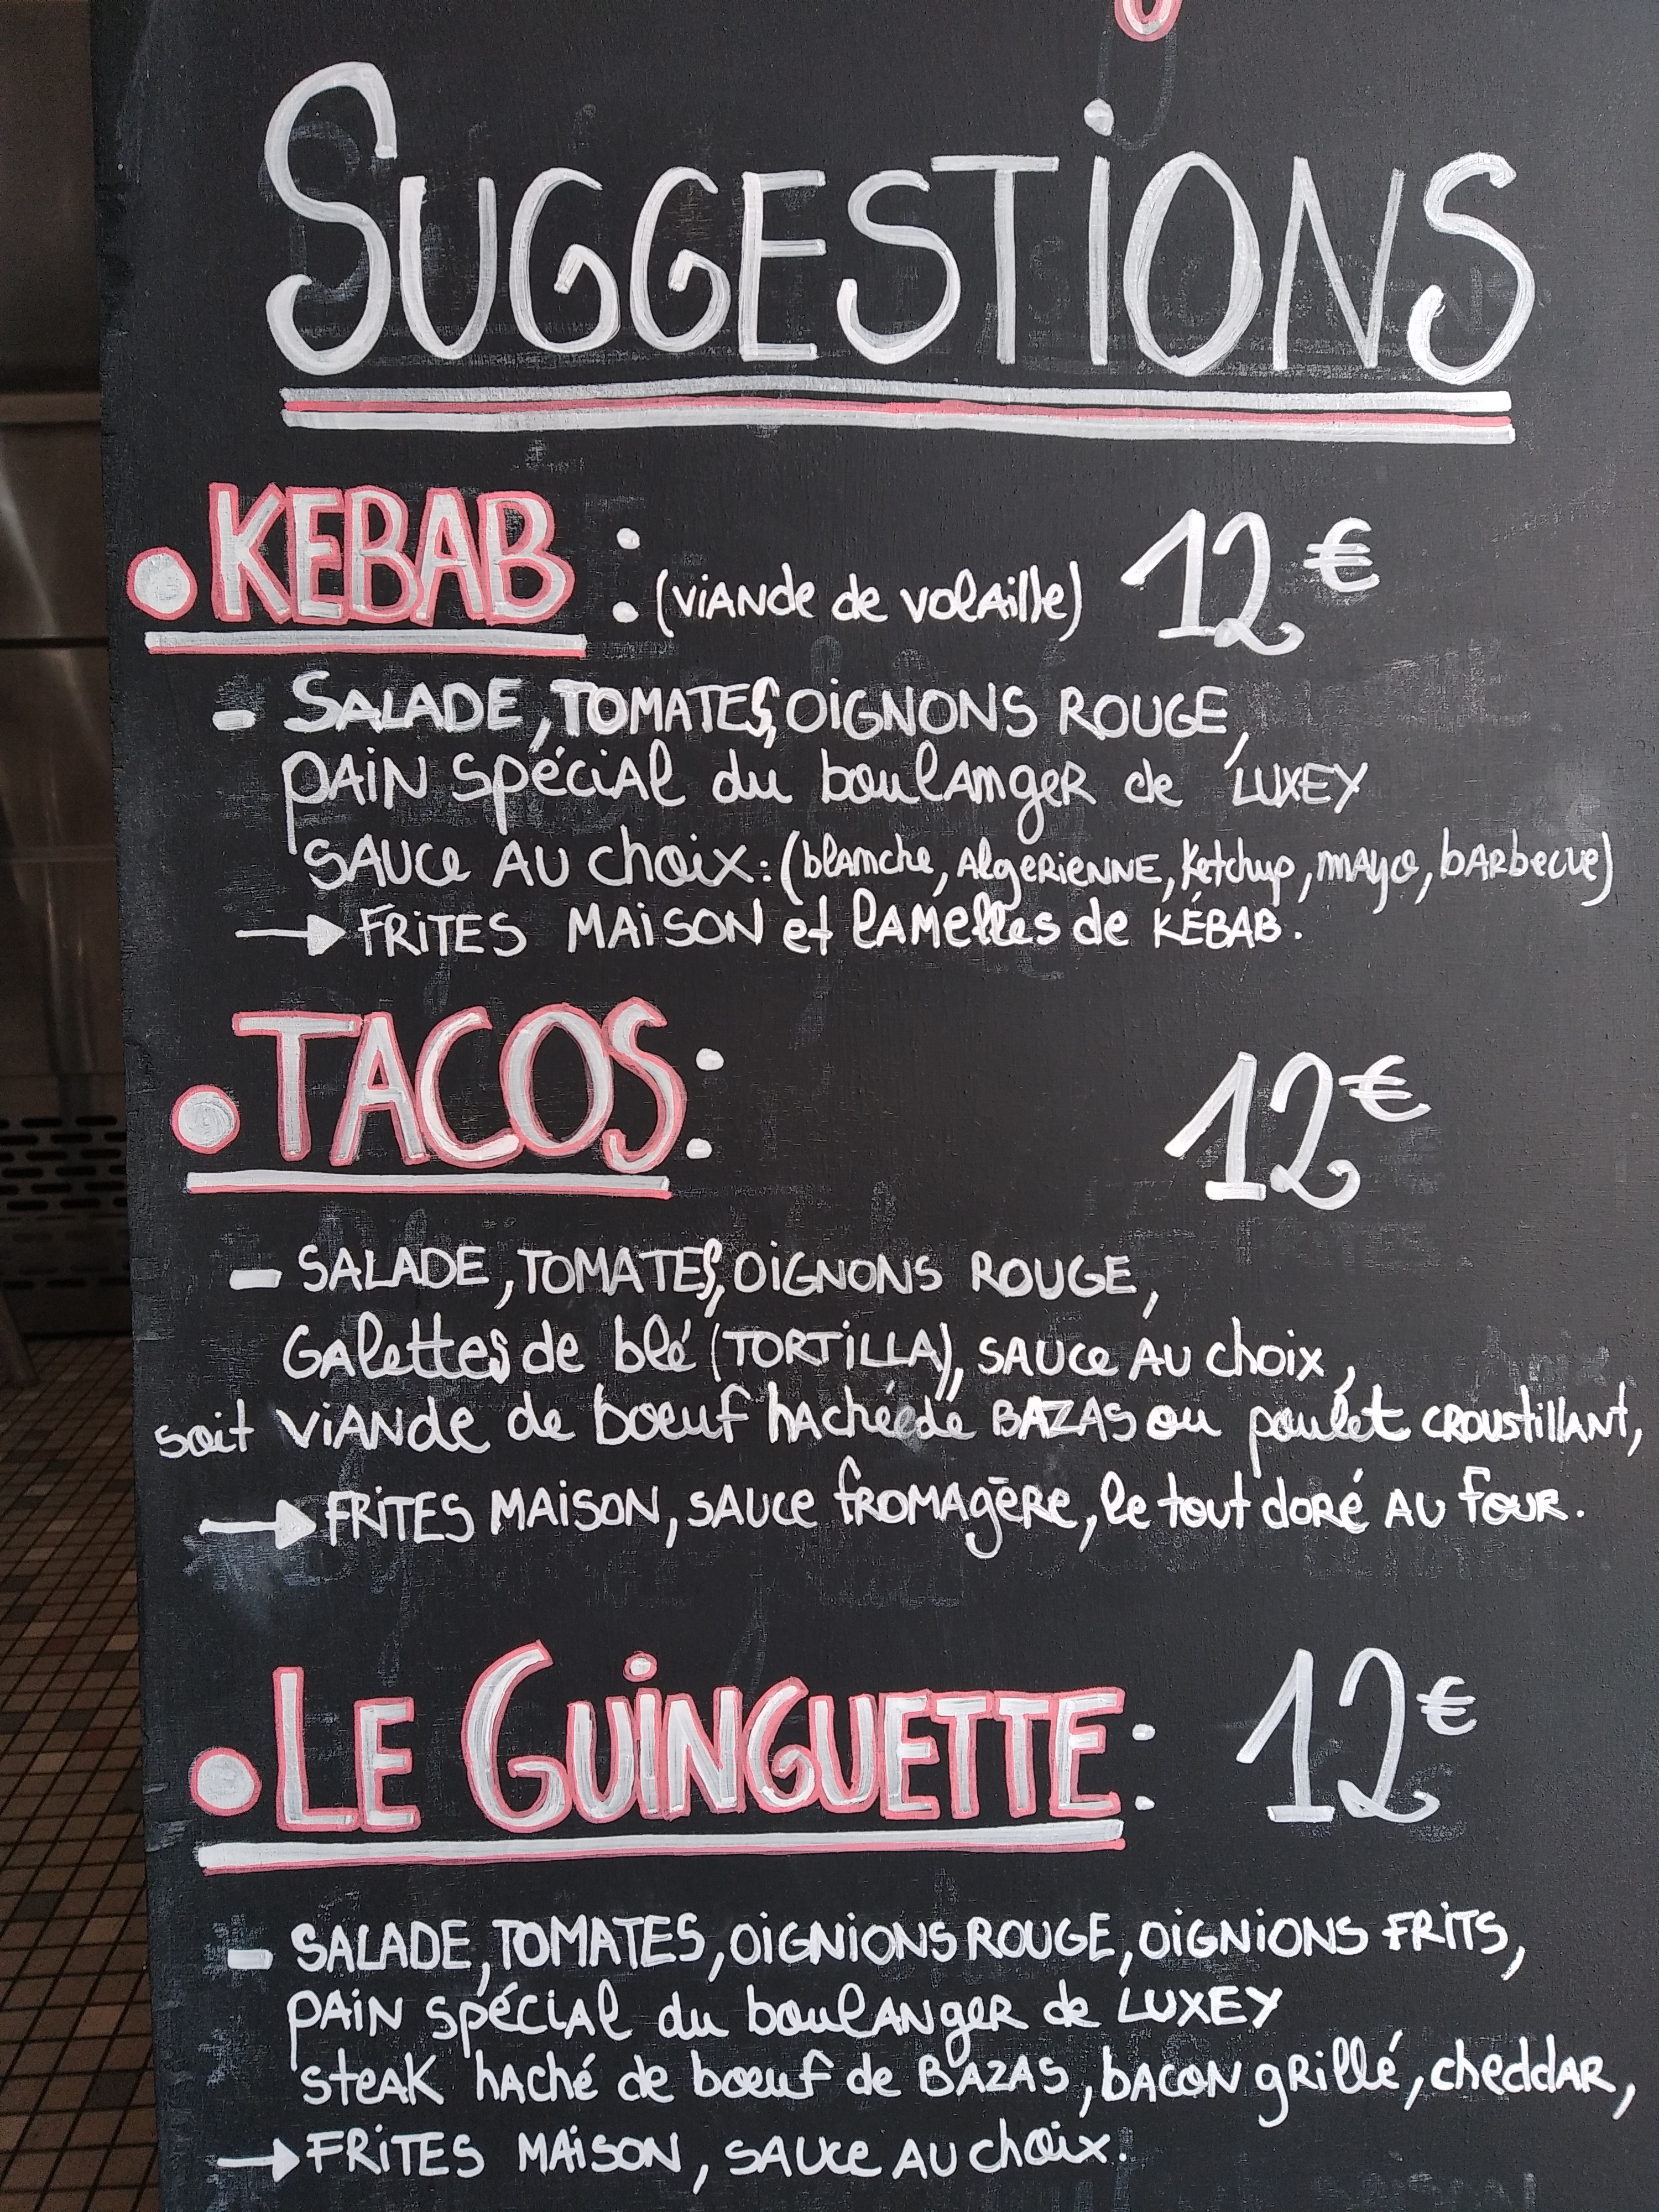 SUGGESTIONS
• KEBAB : (viande de volaille) 12€
- SALADE, TOMATES, OIGNONS ROUGE,
PAIN spécial du boulanger de LUXEY
SAUCE AU choix : (blanche, Algerienne, Ketchup, mayo, barbecue)
→ FRITES MAISON et lamelles de KÉBAB.
• TACOS : 12€
- SALADE, TOMATES, OIGNONS ROUGE,
Galettes de blé (TORTILLA), SAUCE AU choix,
soit viande de boeuf hachée de BAZAS ou poulet croustillant,
→ FRITES MAISON, SAUCE fromagère, le tout doré AU four.
• LE GUINGUETTE : 12€
- SALADE, TOMATES, OIGNIONS ROUGE, OIGNIONS FRITS,
PAIN spécial du boulanger de LUXEY
steak haché de boeuf de BAZAS, bacon grillé, cheddar,
→ FRITES MAISON, SAUCE AU choix.